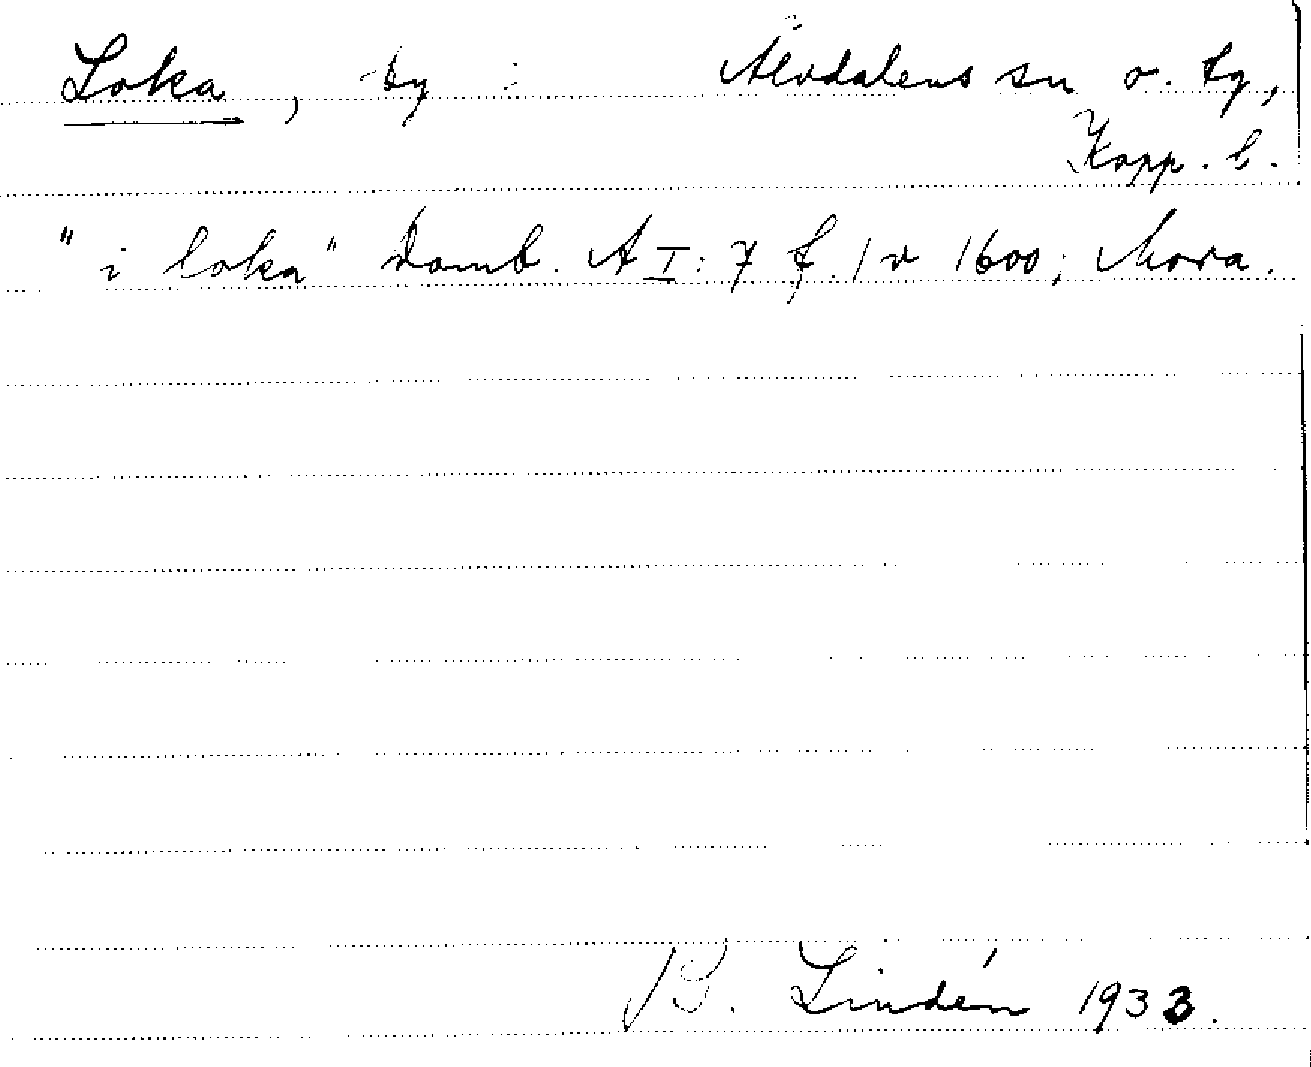 Loka, by i Älvdalens sn o. tg,
Kopp. l.
"i loka" Domb. A I: 7 f. 1 v 1600; Mora.
B. Lindén 1933.